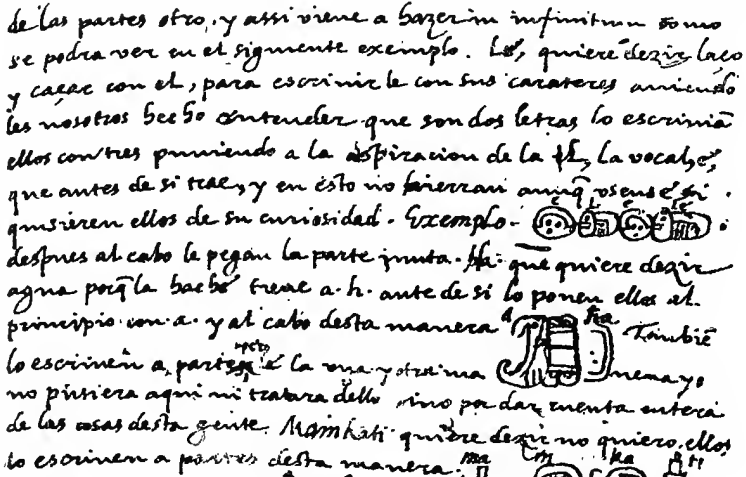 de las partes otro, y assi viene a hazer in infinitum como
se podra ver en el siguiente exemplo. Lé, quiere dezir laço
y caçar con el, para escrivir le con sus carateres aviendo
les nosotros hecho entender que son dos letras lo escrivia
ellos con tres puniendo a la aspiracion de la l, la vocal, e,
que antes de si trae, y en esto no hierran aunq̃ usense si
quisieren ellos de su curiosidad. Exemplo. e l e lé
despues al cabo le pegan la parte junta. Ha. que quiere dezir
agua porq̃ la hache tiene a. h. ante de si lo ponen ellos al
principio con a. y al cabo desta manera a ha Tambiẽ
lo escriven a partes la una y otra
no pusiera aqui ni tratara dello sino por dar cuenta entera
de las cosas desta gente. Mainkati quiere dezir no quiero, ellos
lo escriven a partes desta manera. ma i n ka ti